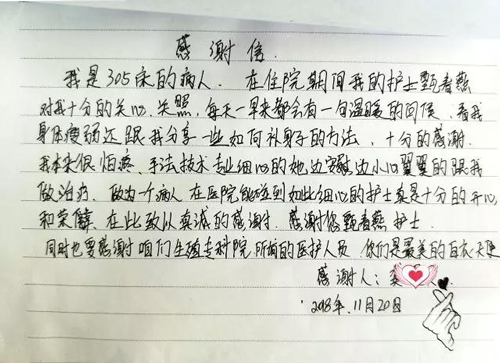 感谢信
我是305床的病人。在住院期间我的护士甄春燕
对我十分的关心、关照，每天一早来都会有一句温暖的问候，看我
身体瘦弱还跟我分享一些如何补身子的方法，十分的感谢。
我本来很怕疼、手法技术专业细心的她边安慰边小心翼翼的跟我
做治疗。做为一个病人在医院能碰到如此细心的护士真是十分的开心
和荣幸，在此致以真诚的感谢。感谢您甄春燕护士。
同时也要感谢咱们生殖专科院所有的医护人员，你们是最美的白衣天使
感谢人：
2018年.11月20日